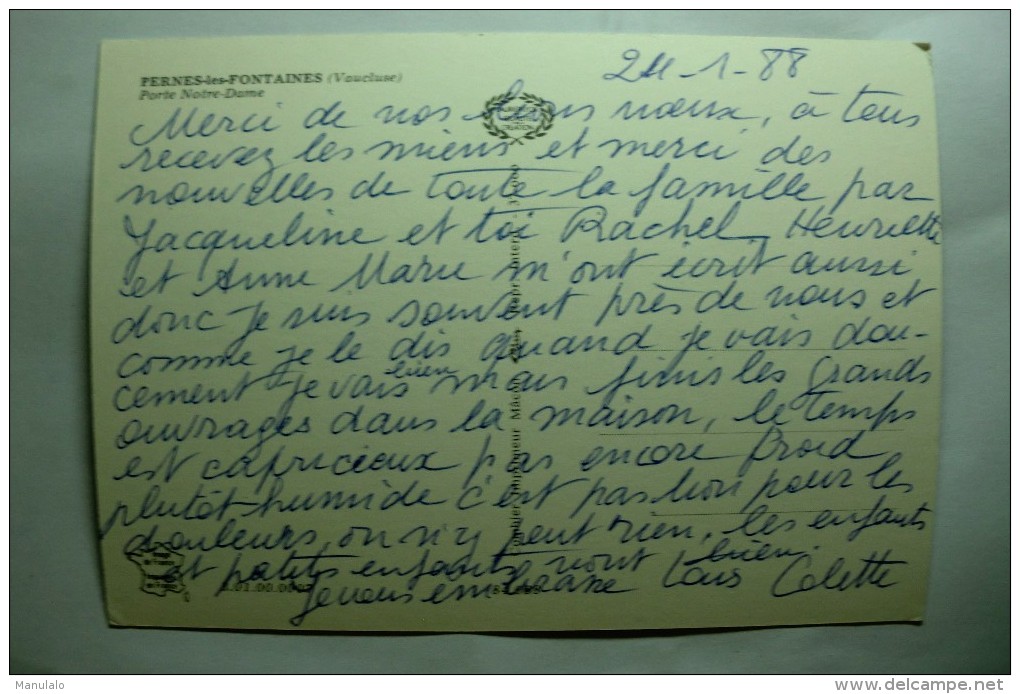 PERNES-les-FONTAINES (Vaucluse)
Porte Notre-Dame
24-1-88
Merci de vos bons vœux, à tous
recevez les miens et merci des
nouvelles de toute la famille par
Jacqueline et toi Rachel, Henriette
et Anne Marie m'ont écrit aussi
donc je suis souvent près de vous et
comme je le dis quand je vais dou-
cement je vais bien mais finis les grands
ouvrages dans la maison, le temps
est capricieux pas encore froid
plutôt humide c'est pas bon pour les
douleurs, on n'y peut rien, les enfants
et petits enfants vont bien
Je vous embrasse tous Colette
Manulalo
delcampe.net